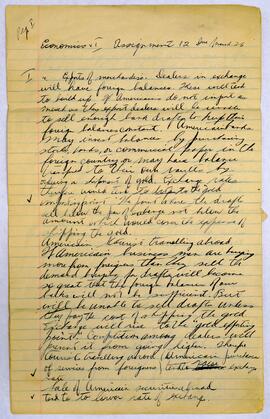 Pep 8
Economics I Assignment 12 Due March 26
I a Exports of merchandise. Dealers in exchange
will have foreign balances. These will tend
to build up. If Americans do not import as
much as they export dealers will be unable
to sell enough bank drafts to keep their
foreign balances constant. American banks
may invest balance by purchasing
stocks, bonds, or commercial paper in the
foreign country or may have balance
shipped to their own vaults by
a shipment of gold. Exchange rates
therefore would tend to to the gold
import point. The point where the draft
will below the par of exchange not below the
amount which would cover the expense of
shipping the gold.
American tourists travelling abroad.
If American business men are buying
more from foreigners than they sell the
demand for drafts will become
so great that the foreign balances of our
banks will not be sufficient. Banks
will be unable to sell drafts unless
they pay the cost of shipping the gold.
Exchange will rise to the gold shipping
point. Competition among dealers will
prevent it from going higher. Therefore
tourists travelling abroad (American purchase
of service from foreigners) tends to raise exchange
rate
Sale of American securities abroad
tends to lower rate of exchange